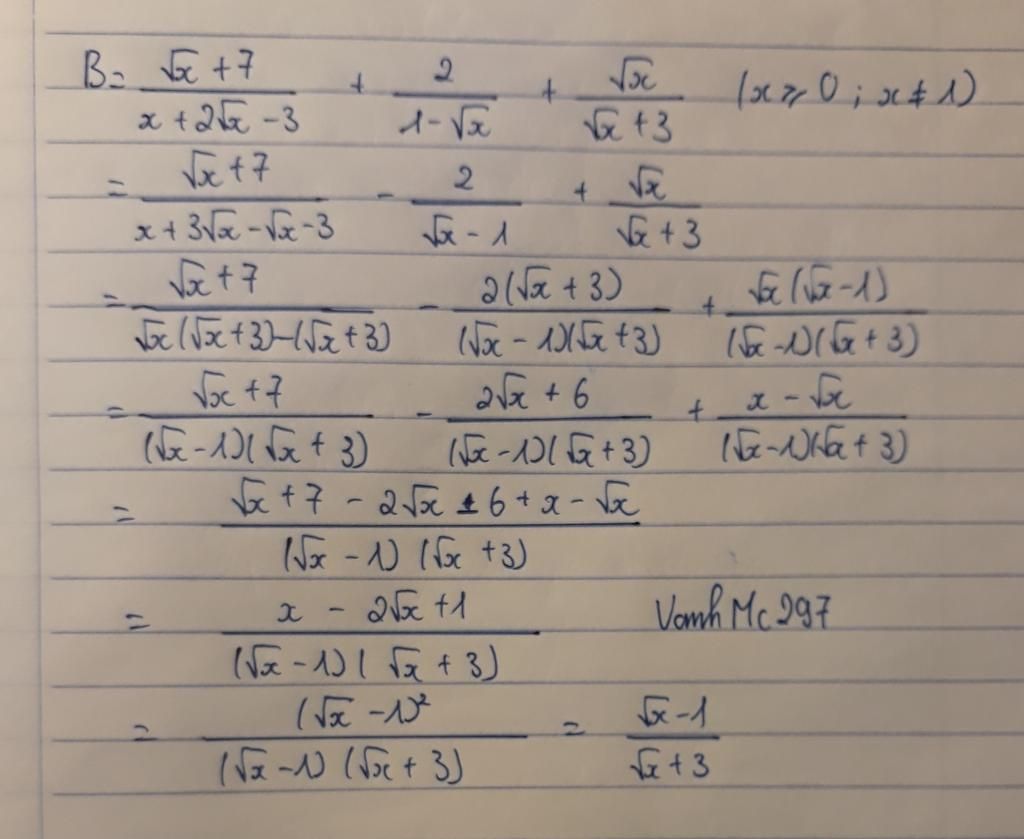 B = (√x + 7)/(x + 2√x - 3) + 2/(1 - √x) + √x/(√x + 3) (x ⩾ 0 ; x ≠ 1)
= (√x + 7)/(x + 3√x - √x - 3) - 2/(√x - 1) + √x/(√x + 3)
= (√x + 7)/(√x(√x + 3) - (√x + 3)) - 2(√x + 3)/((√x - 1)(√x + 3)) + √x(√x - 1)/((√x - 1)(√x + 3))
= (√x + 7)/((√x - 1)(√x + 3)) - (2√x + 6)/((√x - 1)(√x + 3)) + (x - √x)/((√x - 1)(√x + 3))
= (√x + 7 - 2√x - 6 + x - √x)/((√x - 1)(√x + 3))
= (x - 2√x + 1)/((√x - 1)(√x + 3)) VamhMc297
= (√x - 1)²/((√x - 1)(√x + 3)) = (√x - 1)/(√x + 3)